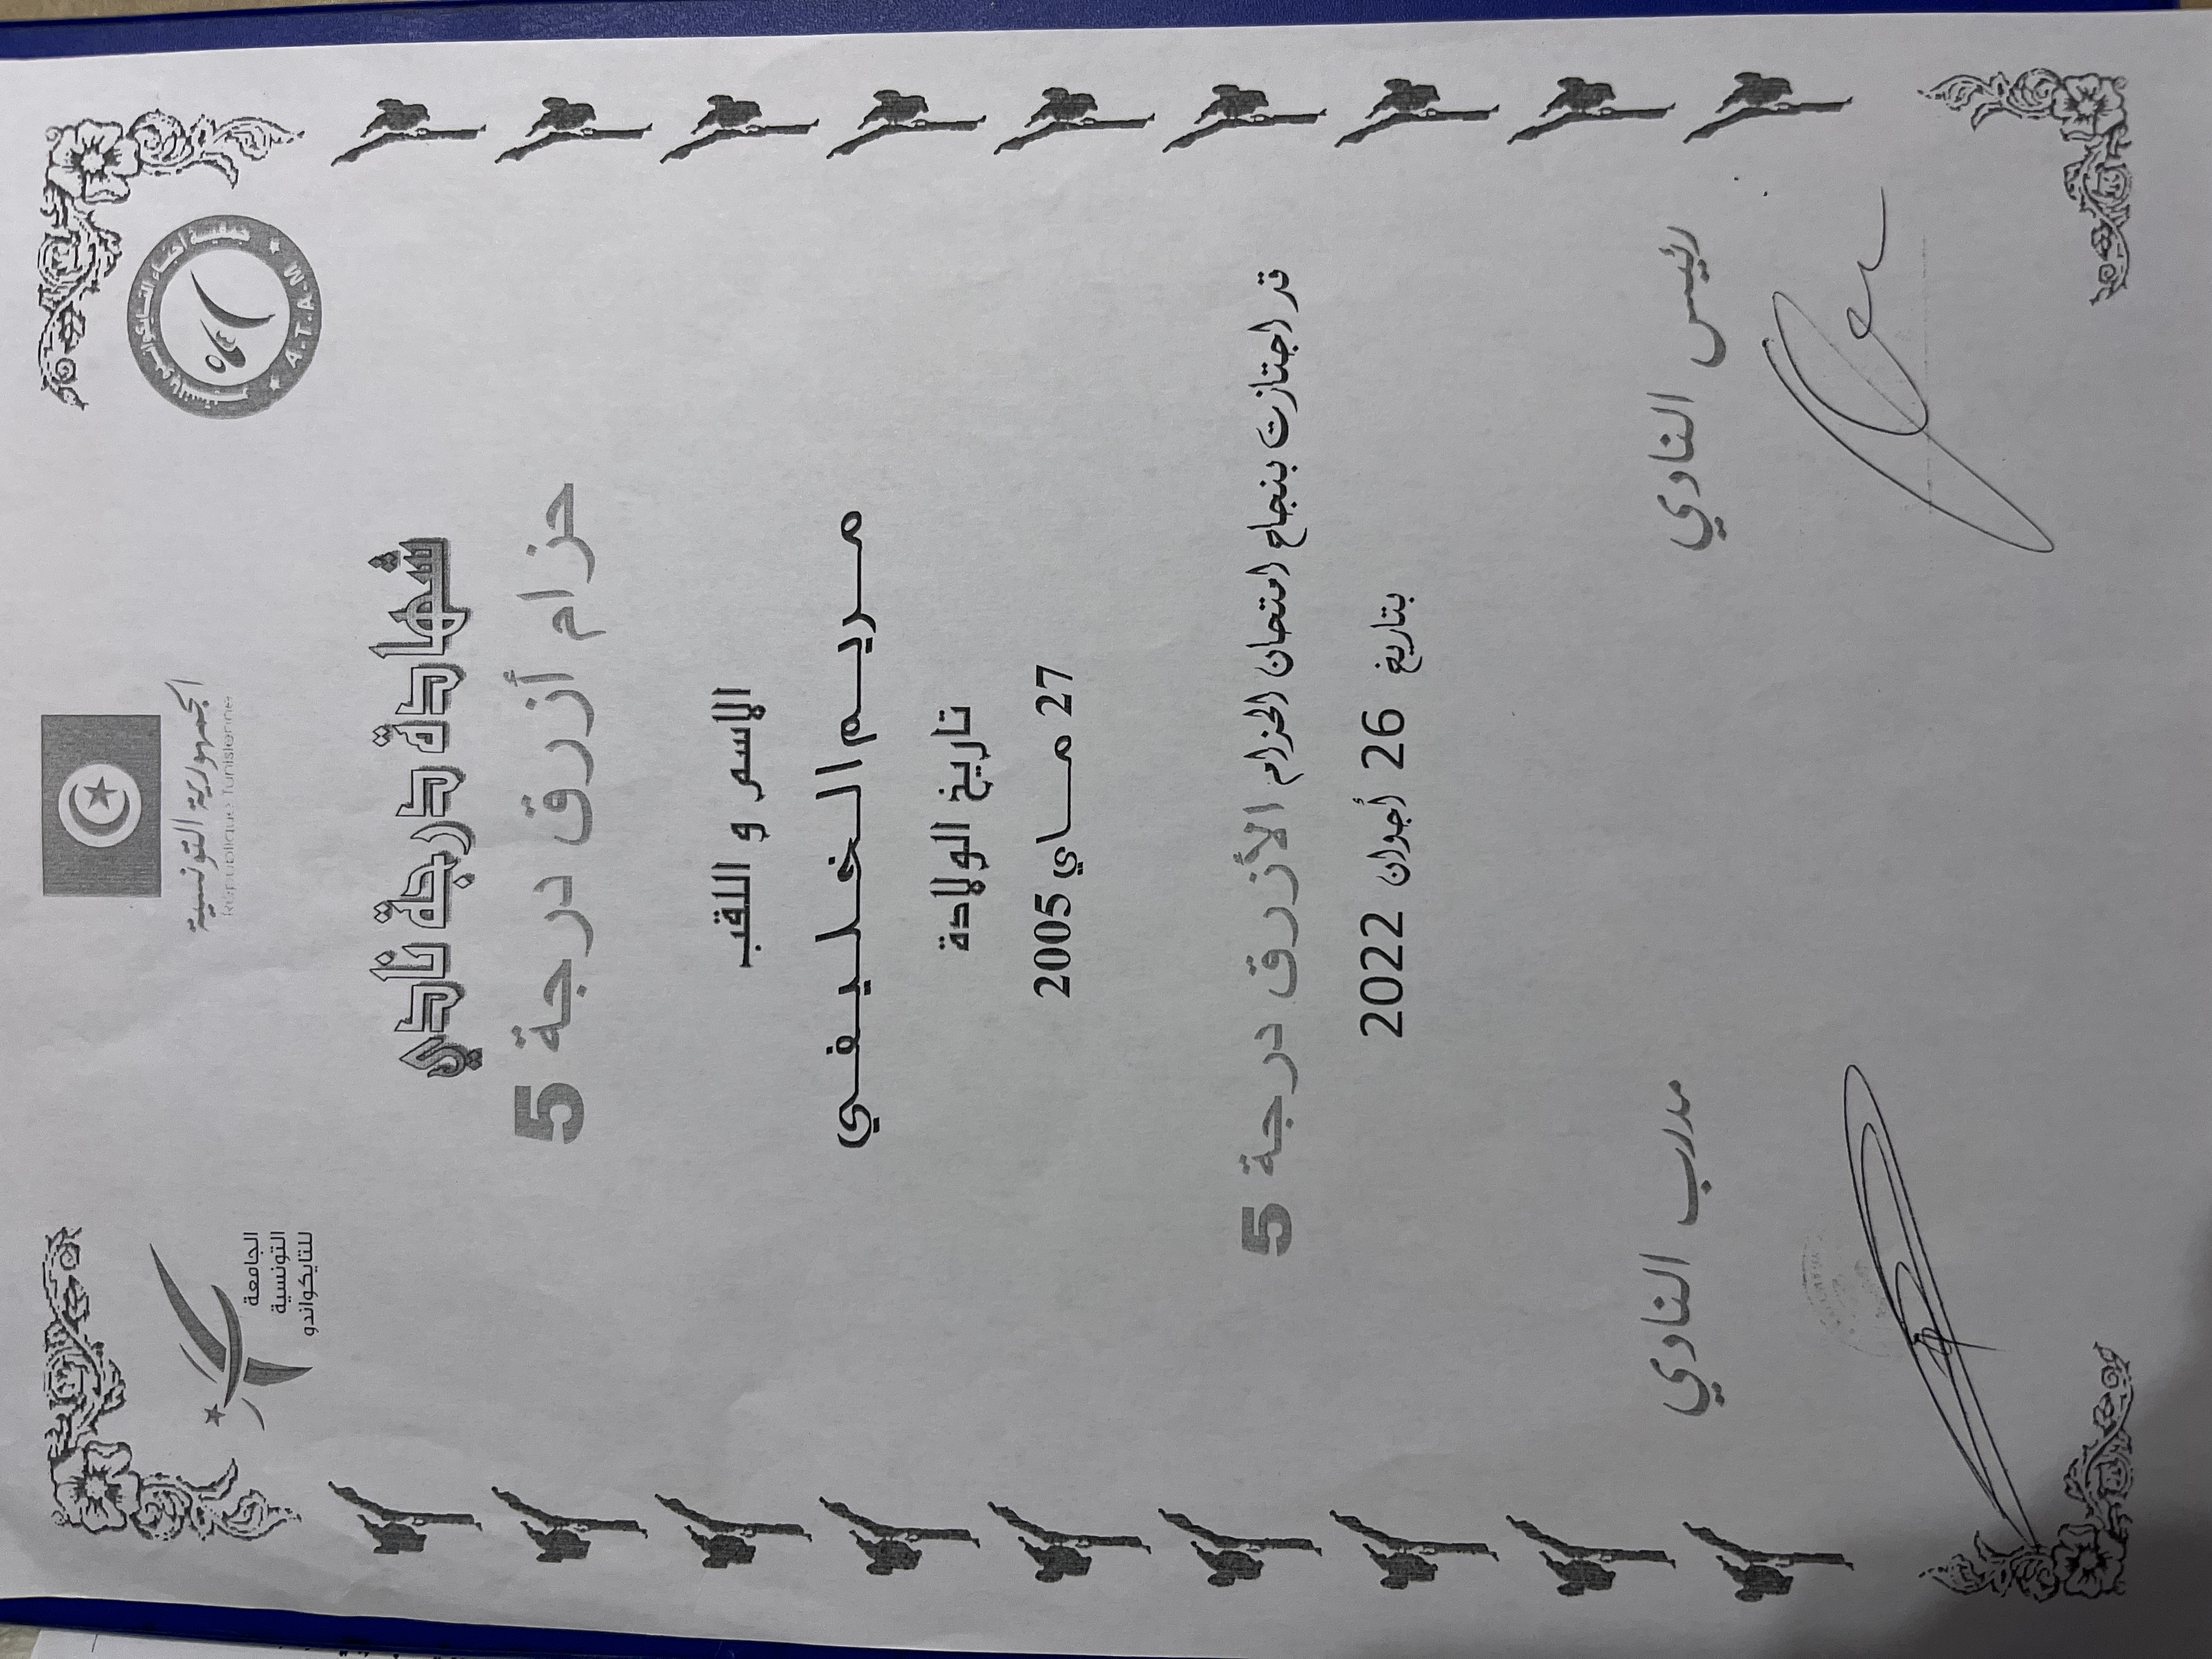 الجمهورية التونسية
République Tunisienne
A.T.A.M
الجامعة
التونسية
للتايكواندو
شهادة درجة نادي
حزام أزرق درجة 5
الإسم و اللقب
مــريــم الــخــلــيــفــي
تاريخ الولادة
27 مــاي 2005
قد اجتازت بنجاح امتحان الحزام الأزرق درجة 5
بتاريخ 26 أجوان 2022
رئيس النادي
مدرب النادي